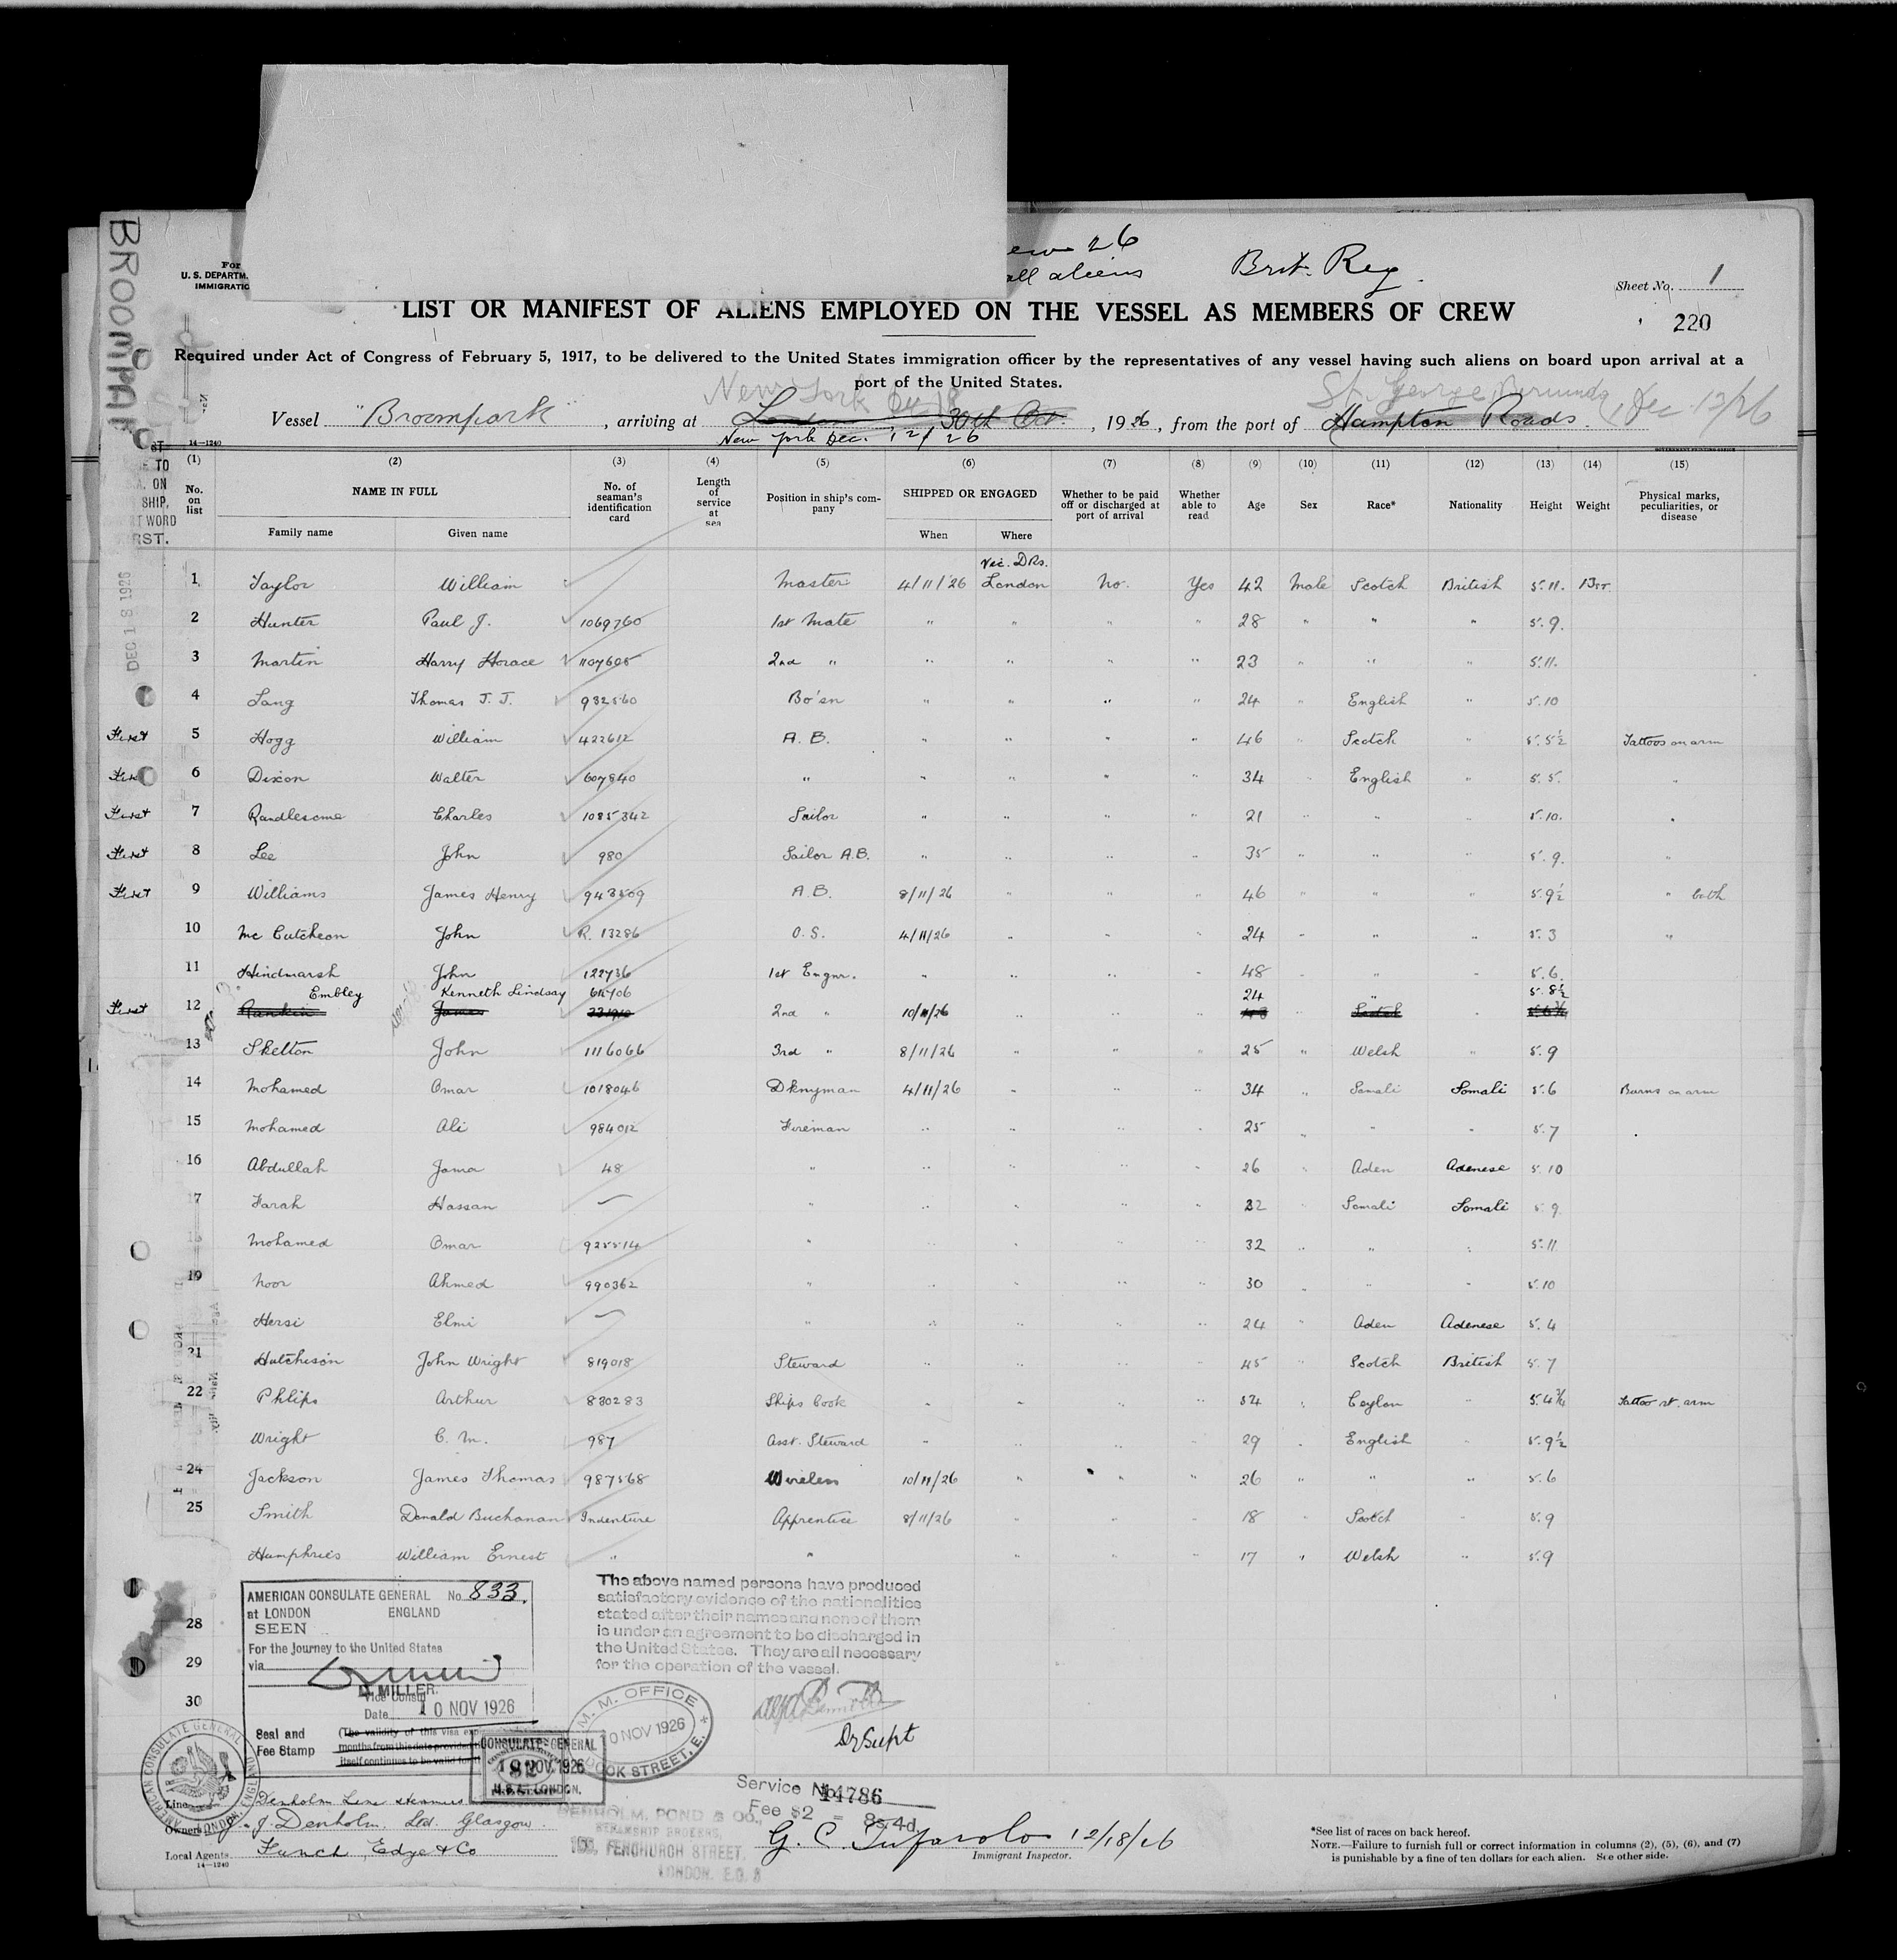 BROOMPARK
ew 26
all aliens
Brit. Reg.
For
U. S. DEPARTM
IMMIGRATIO
Sheet No. 1
220
LIST OR MANIFEST OF ALIENS EMPLOYED ON THE VESSEL AS MEMBERS OF CREW
Required under Act of Congress of February 5, 1917, to be delivered to the United States immigration officer by the representatives of any vessel having such aliens on board upon arrival at a
port of the United States.
New York St. George, Bermuda, Dec 12/26
Vessel "Broompark", arriving at London 30th Oct., 1926, from the port of Hampton Roads.
New York Dec. 12/26
14—1240
GOVERNMENT PRINTING OFFICE
(1) (2) (3) (4) (5) (6) (7) (8) (9) (10) (11) (12) (13) (14) (15)
No. on list NAME IN FULL No. of seaman's identification card Length of service at sea Position in ship's company SHIPPED OR ENGAGED Whether to be paid off or discharged at port of arrival Whether able to read Age Sex Race* Nationality Height Weight Physical marks, peculiarities, or disease
Family name Given name When Where
TO
ON
SHIP,
WORD
RST.
DEC 18 1926
Vic. Dks.
1 Taylor William Master 4/11/26 London No. Yes 42 Male Scotch British 5.11. 13st.
2 Hunter Paul J. 1069760 1st Mate " " " " 28 " " " 5.9.
3 Martin Harry Horace 1107605 2nd " " " " " 23 " " " 5.11.
4 Lang Thomas J. J. 932560 Bo'sn " " " " 24 " English " 5.10
First 5 Hogg William 422612 A. B. " " " " 46 " Scotch " 5.5½ Tattoos on arm
First 6 Dixon Walter 607840 " " " " " 34 " English " 5.5. "
First 7 Randlesome Charles 1085342 Sailor " " " " 21 " " " 5.10. "
First 8 Lee John 980 Sailor A.B. " " " " 35 " " " 5.9. "
First 9 Williams James Henry 943509 A.B. 8/11/26 " " " 46 " " " 5.9½ " both
10 McCutcheon John R. 13286 O.S. 4/11/26 " " " 24 " " " 5.3 "
11 Hindmarsh John 122736 1st Engnr. " " " " 48 " " " 5.6.
Embley Kenneth Lindsay 24 " 5.8½
First 12 Rankin James 2nd " 10/11/26 " " " " Scotch "
13 Skelton John 1116066 3rd " 8/11/26 " " " 25 " Welsh " 5.9
14 Mohamed Omar 1018046 Dknyman 4/11/26 " " " 34 " Somali Somali 5.6 Burns on arm
15 Mohamed Ali 984012 Fireman " " " " 25 " " " 5.7
16 Abdullah Jama 48 " " " " " 26 " Aden Adenese 5.10
17 Farah Hassan — " " " " " 32 " Somali Somali 5.9
Mohamed Omar 925514 " " " " " 32 " " " 5.11
19 Noor Ahmed 990362 " " " " " 30 " " " 5.10
Hersi Elmi — " " " " " 24 " Aden Adenese 5.4
21 Hutchison John Wright 819018 Steward " " " " 45 " Scotch British 5.7
22 Philips Arthur 830283 Ships Cook " " " " 54 " Ceylon " 5.4¾ Tattoo rt. arm
Wright C. M. 987 Asst. Steward " " " " 29 " English " 5.9½
24 Jackson James Thomas 987568 Wireless 10/11/26 " " " 26 " " " 5.6
25 Smith Donald Buchanan Indenture Apprentice 8/11/26 " " " 18 " Scotch " 5.9
Humphries William Ernest " " " " " 17 " Welsh " 5.9
28
29
30
AMERICAN CONSULATE GENERAL No. 833.
at LONDON ENGLAND
SEEN
For the Journey to the United States
via
MILLER.
Vice Consul
Date 10 NOV 1926
Seal and
Fee Stamp
(The validity of this visa
months from this date provided
itself continues to be valid for
AMERICAN CONSULATE GENERAL LONDON, ENGLAND
CONSULATE-GENERAL
10 NOV. 1926
U.S.A. LONDON.
The above named persons have produced
satisfactory evidence of the nationalities
stated after their names and none of them
is under an agreement to be discharged in
the United States. They are all necessary
for the operation of the vessel.
M. M. OFFICE
10 NOV 1926
STREET, E.
D/Supt
Service No. 14786
Fee $2 = 8s. 4d.
Line Denholm Line Steamers
Owners J. & J. Denholm Ltd. Glasgow.
Local Agents Funch Edye & Co
14—1240
DENHOLM, POND & Co.,
STEAMSHIP BROKERS,
FENCHURCH STREET,
LONDON. E.C. 3
G. C. Tufarolo 12/18/26
Immigrant Inspector.
*See list of races on back hereof.
NOTE.—Failure to furnish full or correct information in columns (2), (5), (6), and (7)
is punishable by a fine of ten dollars for each alien. See other side.